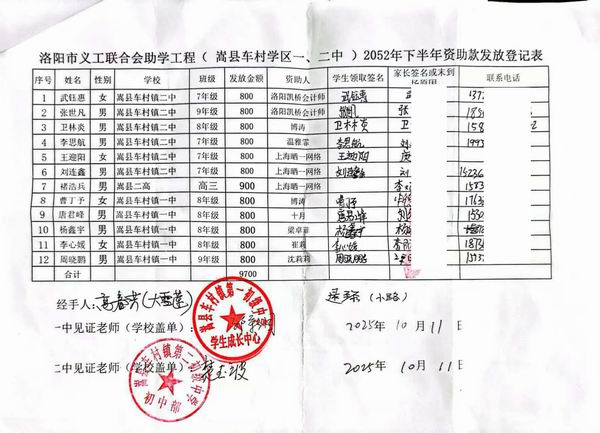 洛阳市义工联合会助学工程（ 嵩县车村学区一、二中 ）2052年下半年资助款发放登记表
序号 姓名 性别 学校 班级 发放金额 资助人 学生领取签名 家长签名或未到场原因 联系电话
1 武钰惠 女 嵩县车村镇二中 7年级 800 洛阳凯桥会计师 武钰惠 137
2 张世凡 男 嵩县车村镇二中 9年级 800 洛阳凯桥会计师 张
3 卫林炎 男 嵩县车村镇二中 8年级 800 博涛 卫林炎 卫 158
4 李思航 男 嵩县车村镇二中 7年级 800 温雅霏 李思航
5 王迎阳 女 嵩县车村镇二中 7年级 800 上海晒一网络 王迎阳
6 刘连鑫 男 嵩县车村镇二中 7年级 800 上海晒一网络 刘连鑫 刘
7 褚浩兵 男 嵩县二高 高三 900 上海晒一网络
8 曹丁予 男 嵩县车村镇一中 7年级 800 博涛
9 唐君峰 男 嵩县车村镇一中 8年级 800 十月
10 杨鑫宇 男 嵩县车村镇一中 9年级 800 梁卓菲 杨鑫宇
11 李心媛 女 嵩县车村镇一中 8年级 800 崔莉 李心媛
12 周晓鹏 男 嵩县车村镇一中 9年级 800 沈莉莉 周晓鹏
合计 9700
经手人：高春芳（大雪莲） （小路）
一中见证老师（学校盖单） 2025年 10月 11日
嵩县车村镇第一初级中学
学生成长中心
二中见证老师（学校盖单） 2025年 10月 11日
嵩县车村镇第二初级中学
初中部